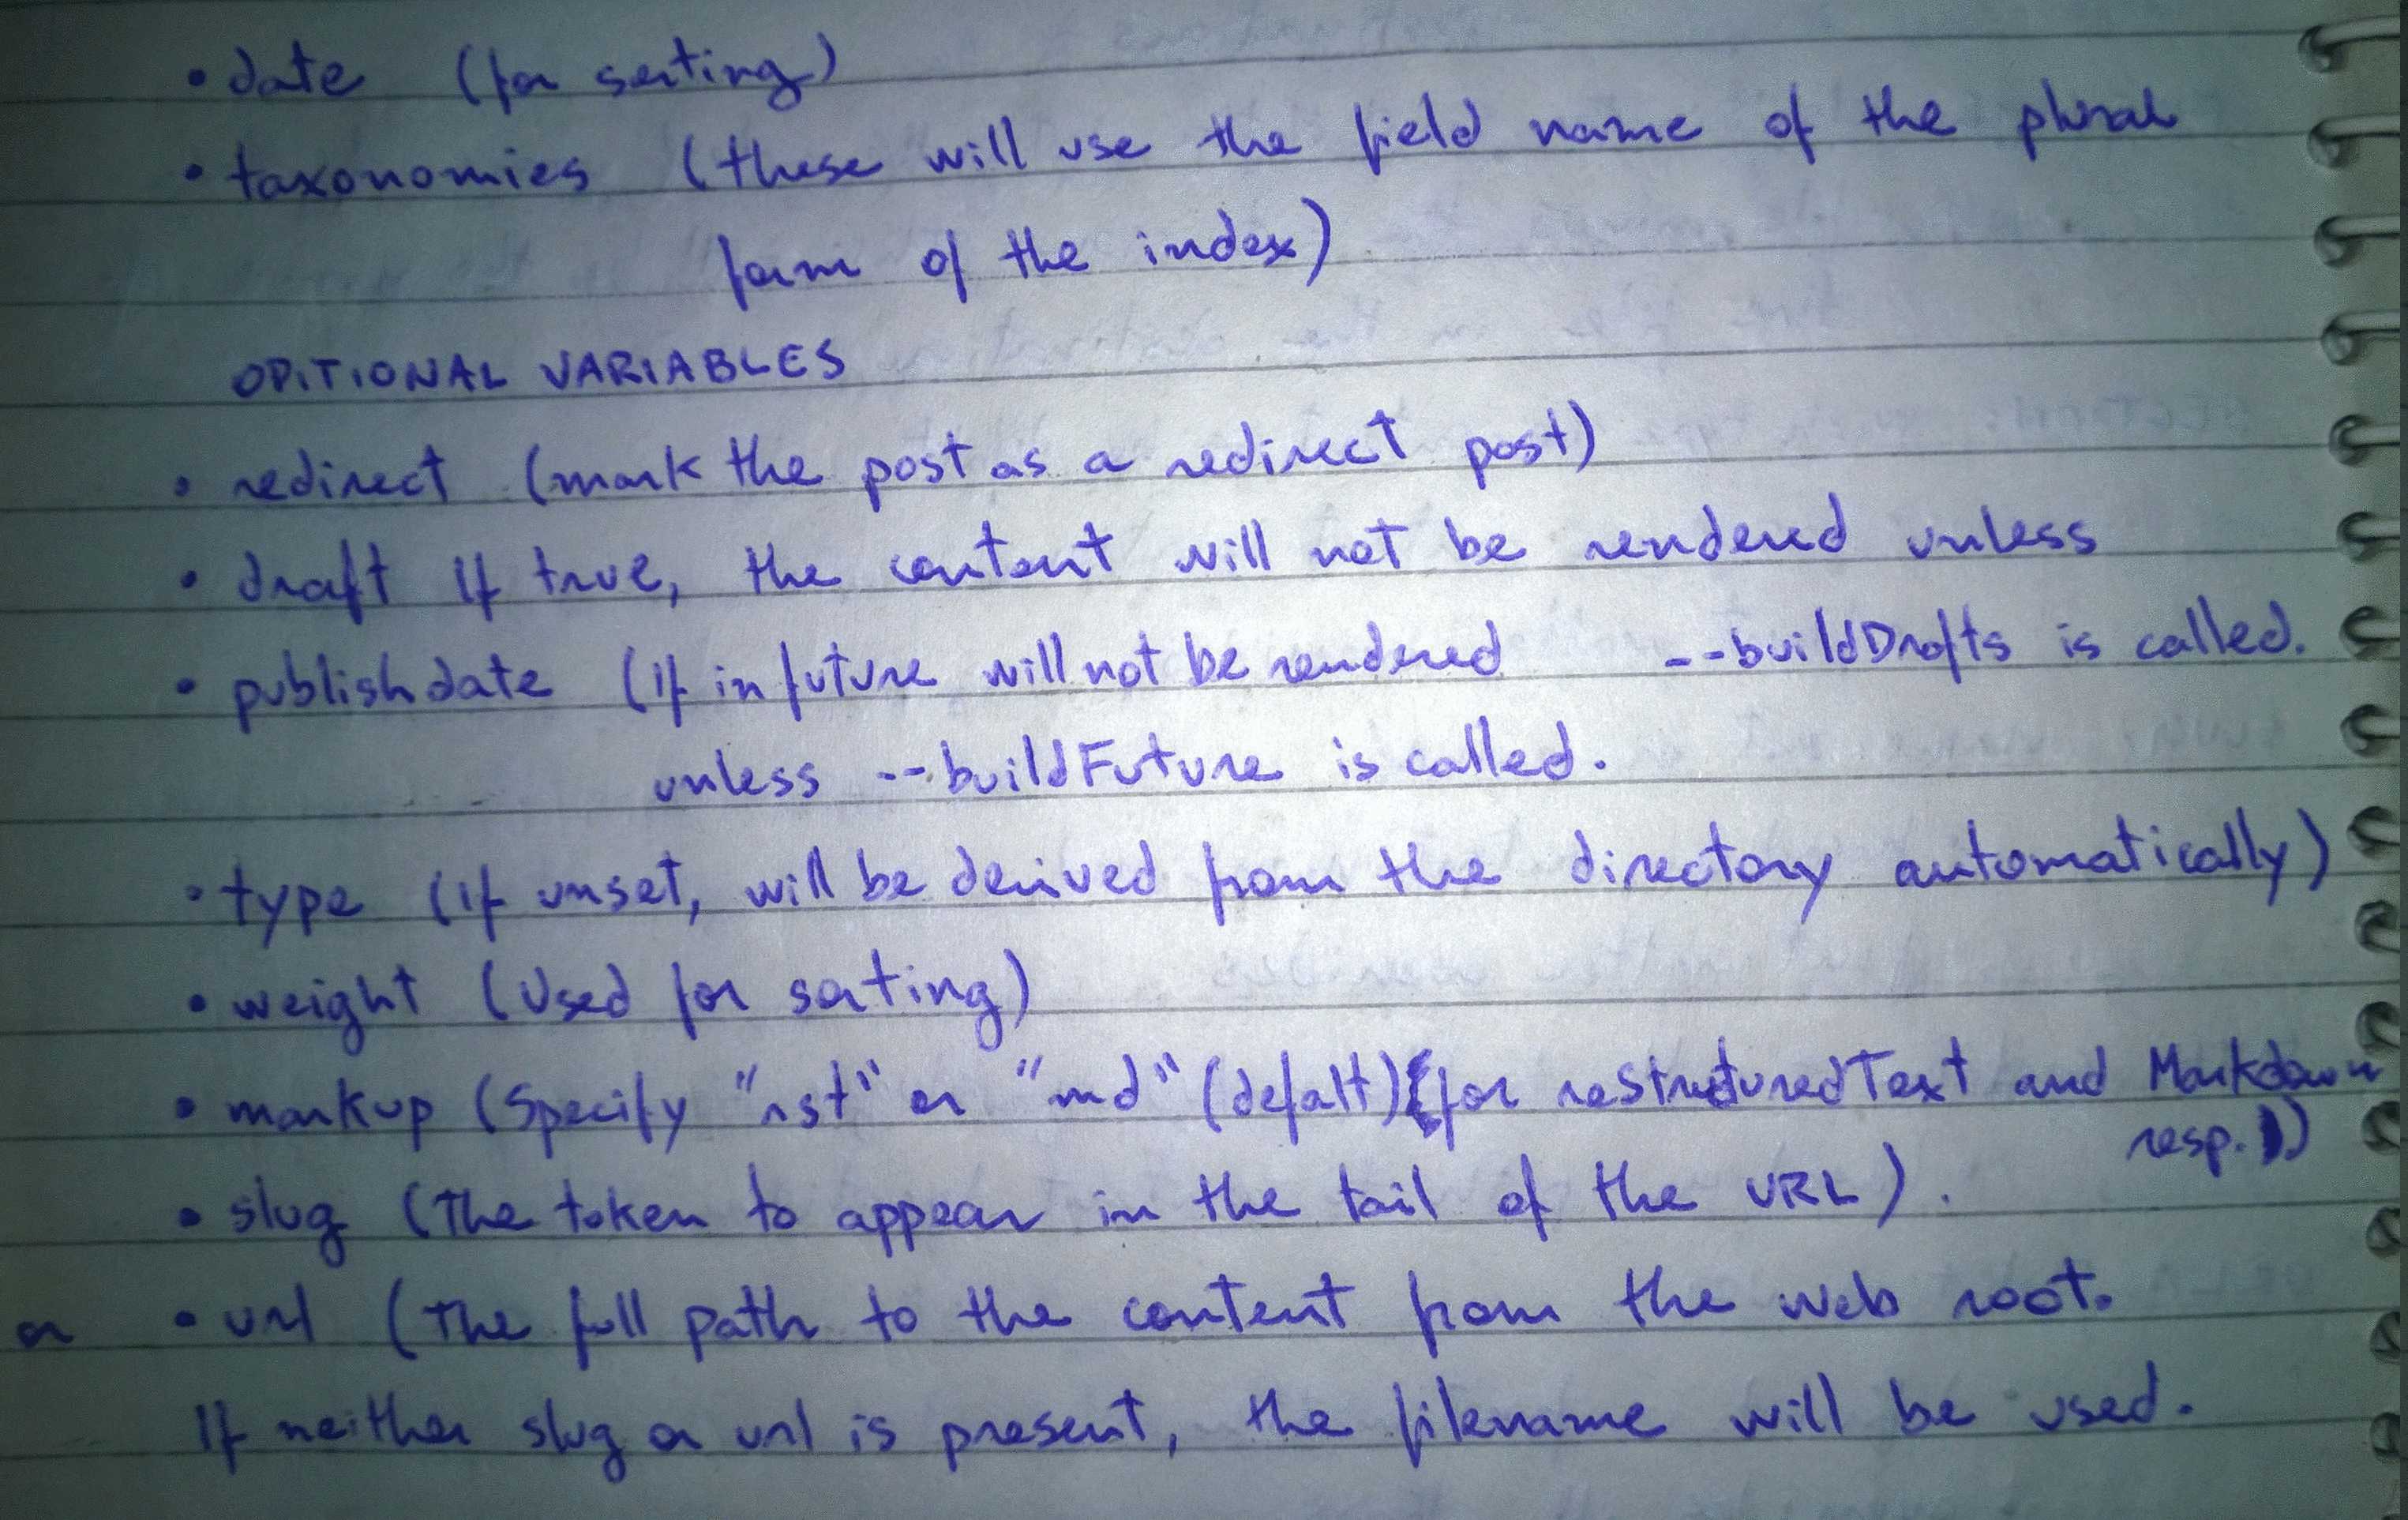 • date (for sorting)
• taxonomies (these will use the field name of the plural
form of the index)
OPITIONAL VARIABLES
• redirect (mark the post as a redirect post)
• draft If true, the content will not be rendered unless
--buildDrafts is called.
• publishdate (If in future will not be rendered
unless --buildFuture is called.
• type (If unset, will be derived from the directory automatically)
• weight (Used for sorting)
• markup (Specify "rst" or "md" (defalt) (for reStructuredText and Markdown
resp.))
• slug (The token to appear in the tail of the URL).
or • url (The full path to the content from the web root.
If neither slug or url is present, the filename will be used.